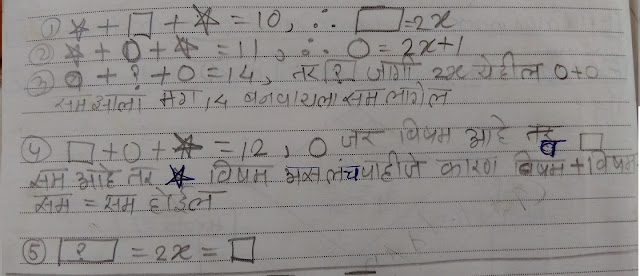 ① ☆ + □ + ☆ = 10, ∴ □ = 2x
② ☆ + O + ☆ = 11, ∴ O = 2x+1
③ O + ? + O = 14, तर ? जागी 2x येईल O+O
सम आला मग 14 बनवायला सम लागेल
④ □ + O + ☆ = 12, O जर विषम आहे तर व □
सम आहे तर ☆ विषम असलंच पाहीजे कारण विषम + विषम
सम = सम होईल
⑤ ? = 2x = □